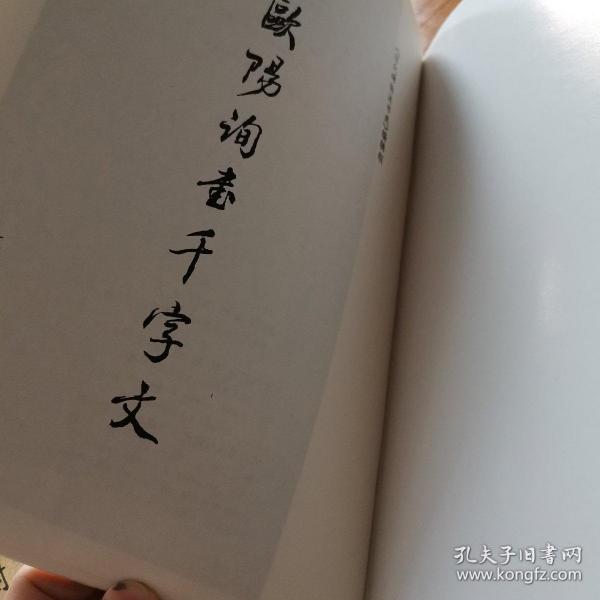 歐陽詢書千字文
孔夫子旧書网
www.kongfz.com